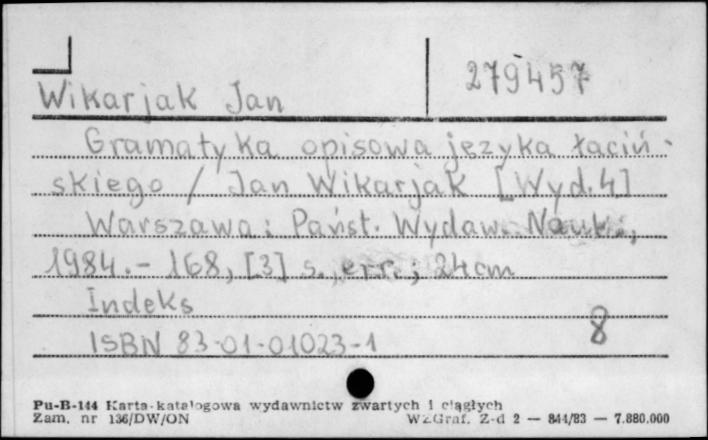 279457
Wikarjak Jan
Gramatyka opisowa języka łaciń-
skiego / Jan Wikarjak [Wyd.4]
Warszawa: Państ. Wydaw. Nauk.,
1984.- 168, [3] s., err.; 24cm
Indeks
ISBN 83-01-01023-1
8
Pu-B-144 Karta katalogowa wydawnictw zwartych i ciągłych
Zam. nr 136/DW/ON WZGraf. Z-d 2 — 844/83 — 7.880.000